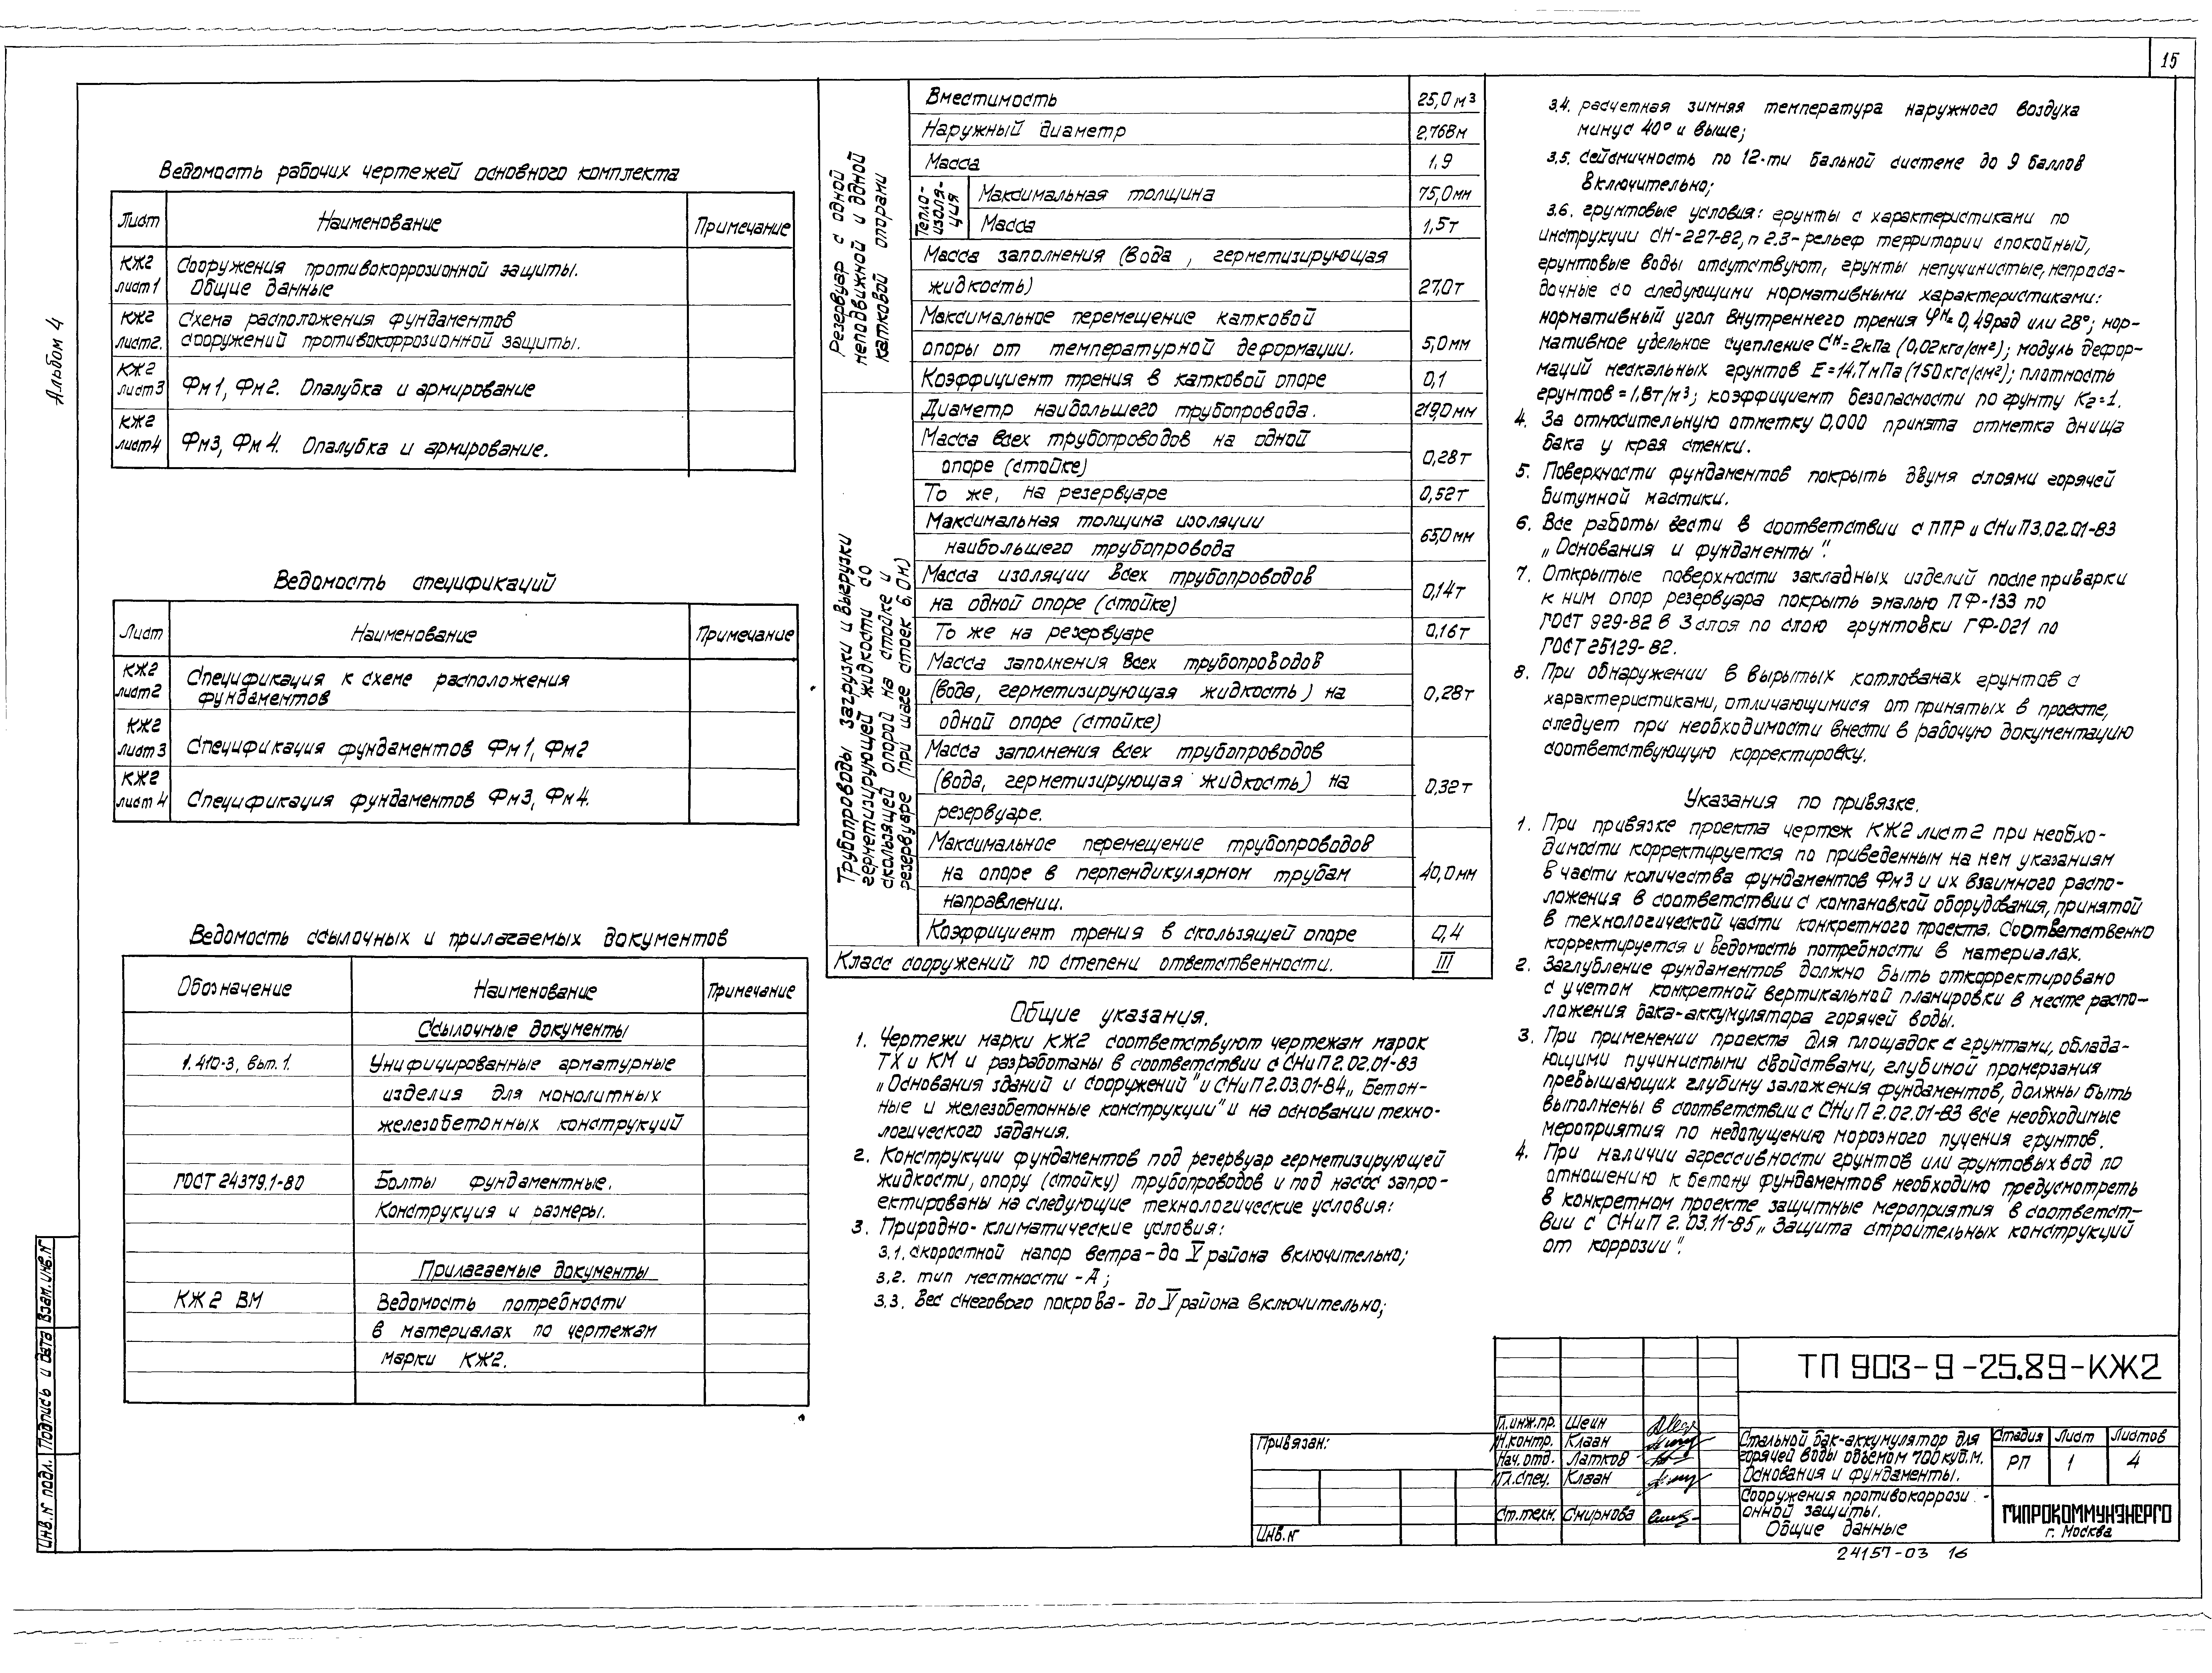 15
Альбом 4
Ведомость рабочих чертежей основного комплекта
Лист Наименование Примечание
КЖ2 лист 1 Сооружения противокоррозионной защиты.
Общие данные
КЖ2 лист2. Схема расположения фундаментов
сооружений противокоррозионной защиты.
КЖ2 лист 3 Фм 1, Фм2. Опалубка и армирование
КЖ2 лист4 Фм3, Фм 4. Опалубка и армирование.
Ведомость спецификаций
Лист Наименование Примечание
КЖ2 лист2 Спецификация к схеме расположения
фундаментов
КЖ2 лист 3 Спецификация фундаментов Фм 1, Фм2
КЖ2 лист 4 Спецификация фундаментов Фм3, Фм4.
Ведомость ссылочных и прилагаемых документов
Обозначение Наименование Примечание
Ссылочные документы
1.410-3, вып. 1. Унифицированные арматурные
изделия для монолитных
железобетонных конструкций
ГОСТ 24379.1-80 Болты фундаментные.
Конструкция и размеры.
Прилагаемые документы
КЖ2 ВМ Ведомость потребности
в материалах по чертежам
марки КЖ2.
Резервуар с одной
неподвижной и одной
катковой опорами
Вместимость 25,0 м³
Наружный диаметр 2,768м
Масса 1,9
Тепло-
изоля-
ция
Максимальная толщина 75,0мм
Масса 1,5т
Масса заполнения (вода, герметизирующая
жидкость) 27,0т
Максимальное перемещение катковой
опоры от температурной деформации. 5,0мм
Коэффициент трения в катковой опоре 0,1
Трубопроводы загрузки и выгрузки
герметизирующей жидкости со
скользящей опорой на стойке и
резервуаре (при шаге стоек 6,0м)
Диаметр наибольшего трубопровода. 219,0мм
Масса всех трубопроводов на одной
опоре (стойке) 0,28т
То же, на резервуаре 0,52т
Максимальная толщина изоляции
наибольшего трубопровода 65,0мм
Масса изоляции всех трубопроводов
на одной опоре (стойке) 0,14т
То же на резервуаре 0,16т
Масса заполнения всех трубопроводов
(вода, герметизирующая жидкость) на
одной опоре (стойке) 0,28т
Масса заполнения всех трубопроводов
(вода, герметизирующая жидкость) на
резервуаре. 0,32т
Максимальное перемещение трубопроводов
на опоре в перпендикулярном трубам
направлении. 40,0мм
Коэффициент трения в скользящей опоре 0,4
Класс сооружений по степени ответственности. III
Общие указания.
1. Чертежи марки КЖ2 соответствуют чертежам марок
ТХ и КМ и разработаны в соответствии с СНиП 2.02.01-83
„Основания зданий и сооружений" и СНиП 2.03.01-84 „Бетон-
ные и железобетонные конструкции" и на основании техно-
логического задания.
2. Конструкции фундаментов под резервуар герметизирующей
жидкости, опору (стойку) трубопроводов и под насос запро-
ектированы на следующие технологические условия:
3. Природно-климатические условия:
3.1. скоростной напор ветра - до V района включительно;
3.2. тип местности - А;
3.3. Вес снегового покрова - до V района включительно;
3.4. расчетная зимняя температура наружного воздуха
минус 40° и выше;
3.5. сейсмичность по 12-ти бальной системе до 9 баллов
включительно;
3.6. грунтовые условия: грунты с характеристиками по
инструкции СН-227-82, п 2.3-рельеф территории спокойный,
грунтовые воды отсутствуют, грунты непучинистые, непроса-
дочные со следующими нормативными характеристиками:
нормативный угол внутреннего трения φᴴ= 0,49рад или 28°; нор-
мативное удельное сцепление Сᴴ=2кПа (0,02кгс/см²); модуль дефор-
маций нескальных грунтов Е=14,7мПа (150кгс/см²); плотность
грунтов = 1,8т/м³; коэффициент безопасности по грунту Кг=1.
4. За относительную отметку 0,000 принята отметка днища
бака у края стенки.
5. Поверхности фундаментов покрыть двумя слоями горячей
битумной мастики.
6. Все работы вести в соответствии с ППР и СНиП3.02.01-83
„Основания и фундаменты".
7. Открытые поверхности закладных изделий после приварки
к ним опор резервуара покрыть эмалью ПФ-133 по
ГОСТ 929-82 в 3 слоя по слою грунтовки ГФ-021 по
ГОСТ 25129-82.
8. При обнаружении в вырытых котлованах грунтов с
характеристиками, отличающимися от принятых в проекте,
следует при необходимости внести в рабочую документацию
соответствующую корректировку.
Указания по привязке.
1. При привязке проекта чертеж КЖ2 лист 2 при необхо-
димости корректируется по приведенным на нем указаниям
в части количества фундаментов Фм3 и их взаимного распо-
ложения в соответствии с компановкой оборудования, принятой
в технологической части конкретного проекта. Соответственно
корректируется и ведомость потребности в материалах.
2. Заглубление фундаментов должно быть откорректировано
с учетом конкретной вертикальной планировки в месте распо-
ложения бака-аккумулятора горячей воды.
3. При применении проекта для площадок с грунтами, облада-
ющими пучинистыми свойствами, глубиной промерзания
превышающих глубину заложения фундаментов, должны быть
выполнены в соответствии с СНиП 2.02.01-83 все необходимые
мероприятия по недопущению морозного пучения грунтов.
4. При наличии агрессивности грунтов или грунтовых вод по
отношению к бетону фундаментов необходимо предусмотреть
в конкретном проекте защитные мероприятия в соответст-
вии с СНиП 2.03.11-85 „Защита строительных конструкций
от коррозии".
Инв. N подл. Подпись и дата Взам. инв. N
Привязан:
Инв. N
Гл. инж. пр. Шеин
Н. контр. Клаан
Нач. отд. Латков
Гл. спец. Клаан
Ст. техн. Смирнова
ТП 903-9-25.89-КЖ2
Стальной бак-аккумулятор для
горячей воды объемом 700 куб.м.
Основания и фундаменты.
Стадия Лист Листов
РП 1 4
Сооружения противокоррози-
онной защиты.
Общие данные
ГИПРОКОММУНЭНЕРГО
г. Москва
24157-03 16